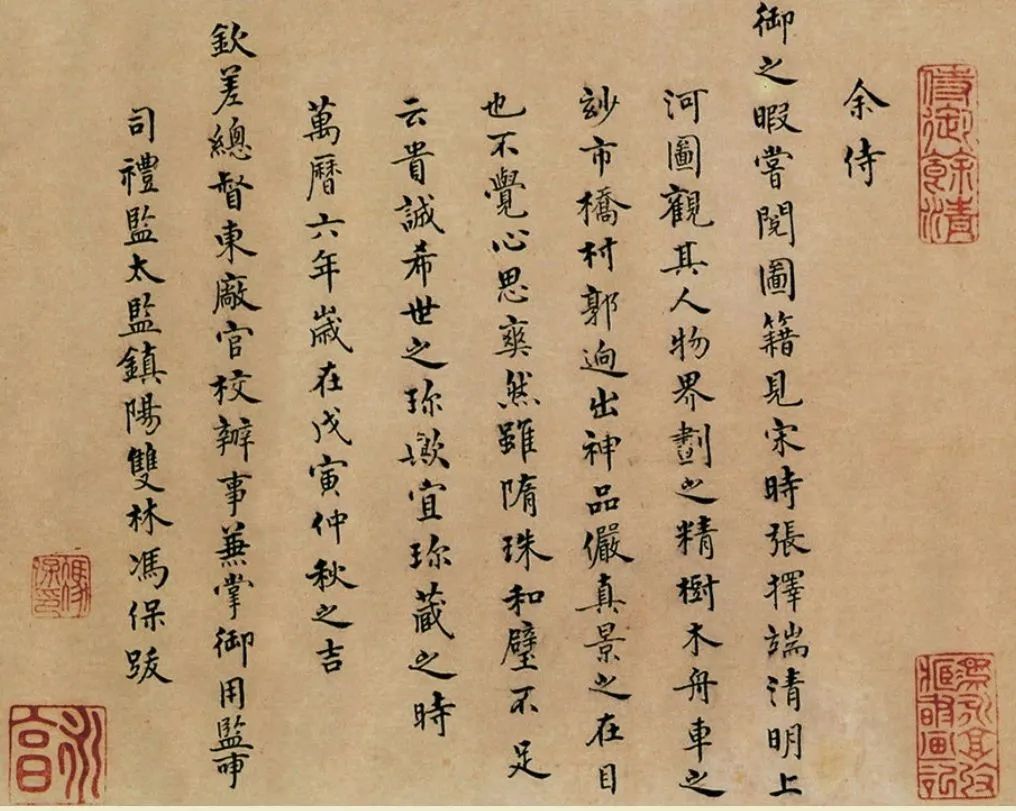 余侍
御之暇嘗閱圖籍見宋時張擇端清明上
河圖觀其人物界劃之精樹木舟車之
妙市橋村郭迥出神品儼真景之在目
也不覺心思爽然雖隋珠和璧不足
云貴誠希世之珎歟宜珎藏之時
萬曆六年歲在戊寅仲秋之吉
欽差總督東廠官校辦事兼掌御用監事
司禮監太監鎮陽雙林馮保跋
侍御餘清
馮保印